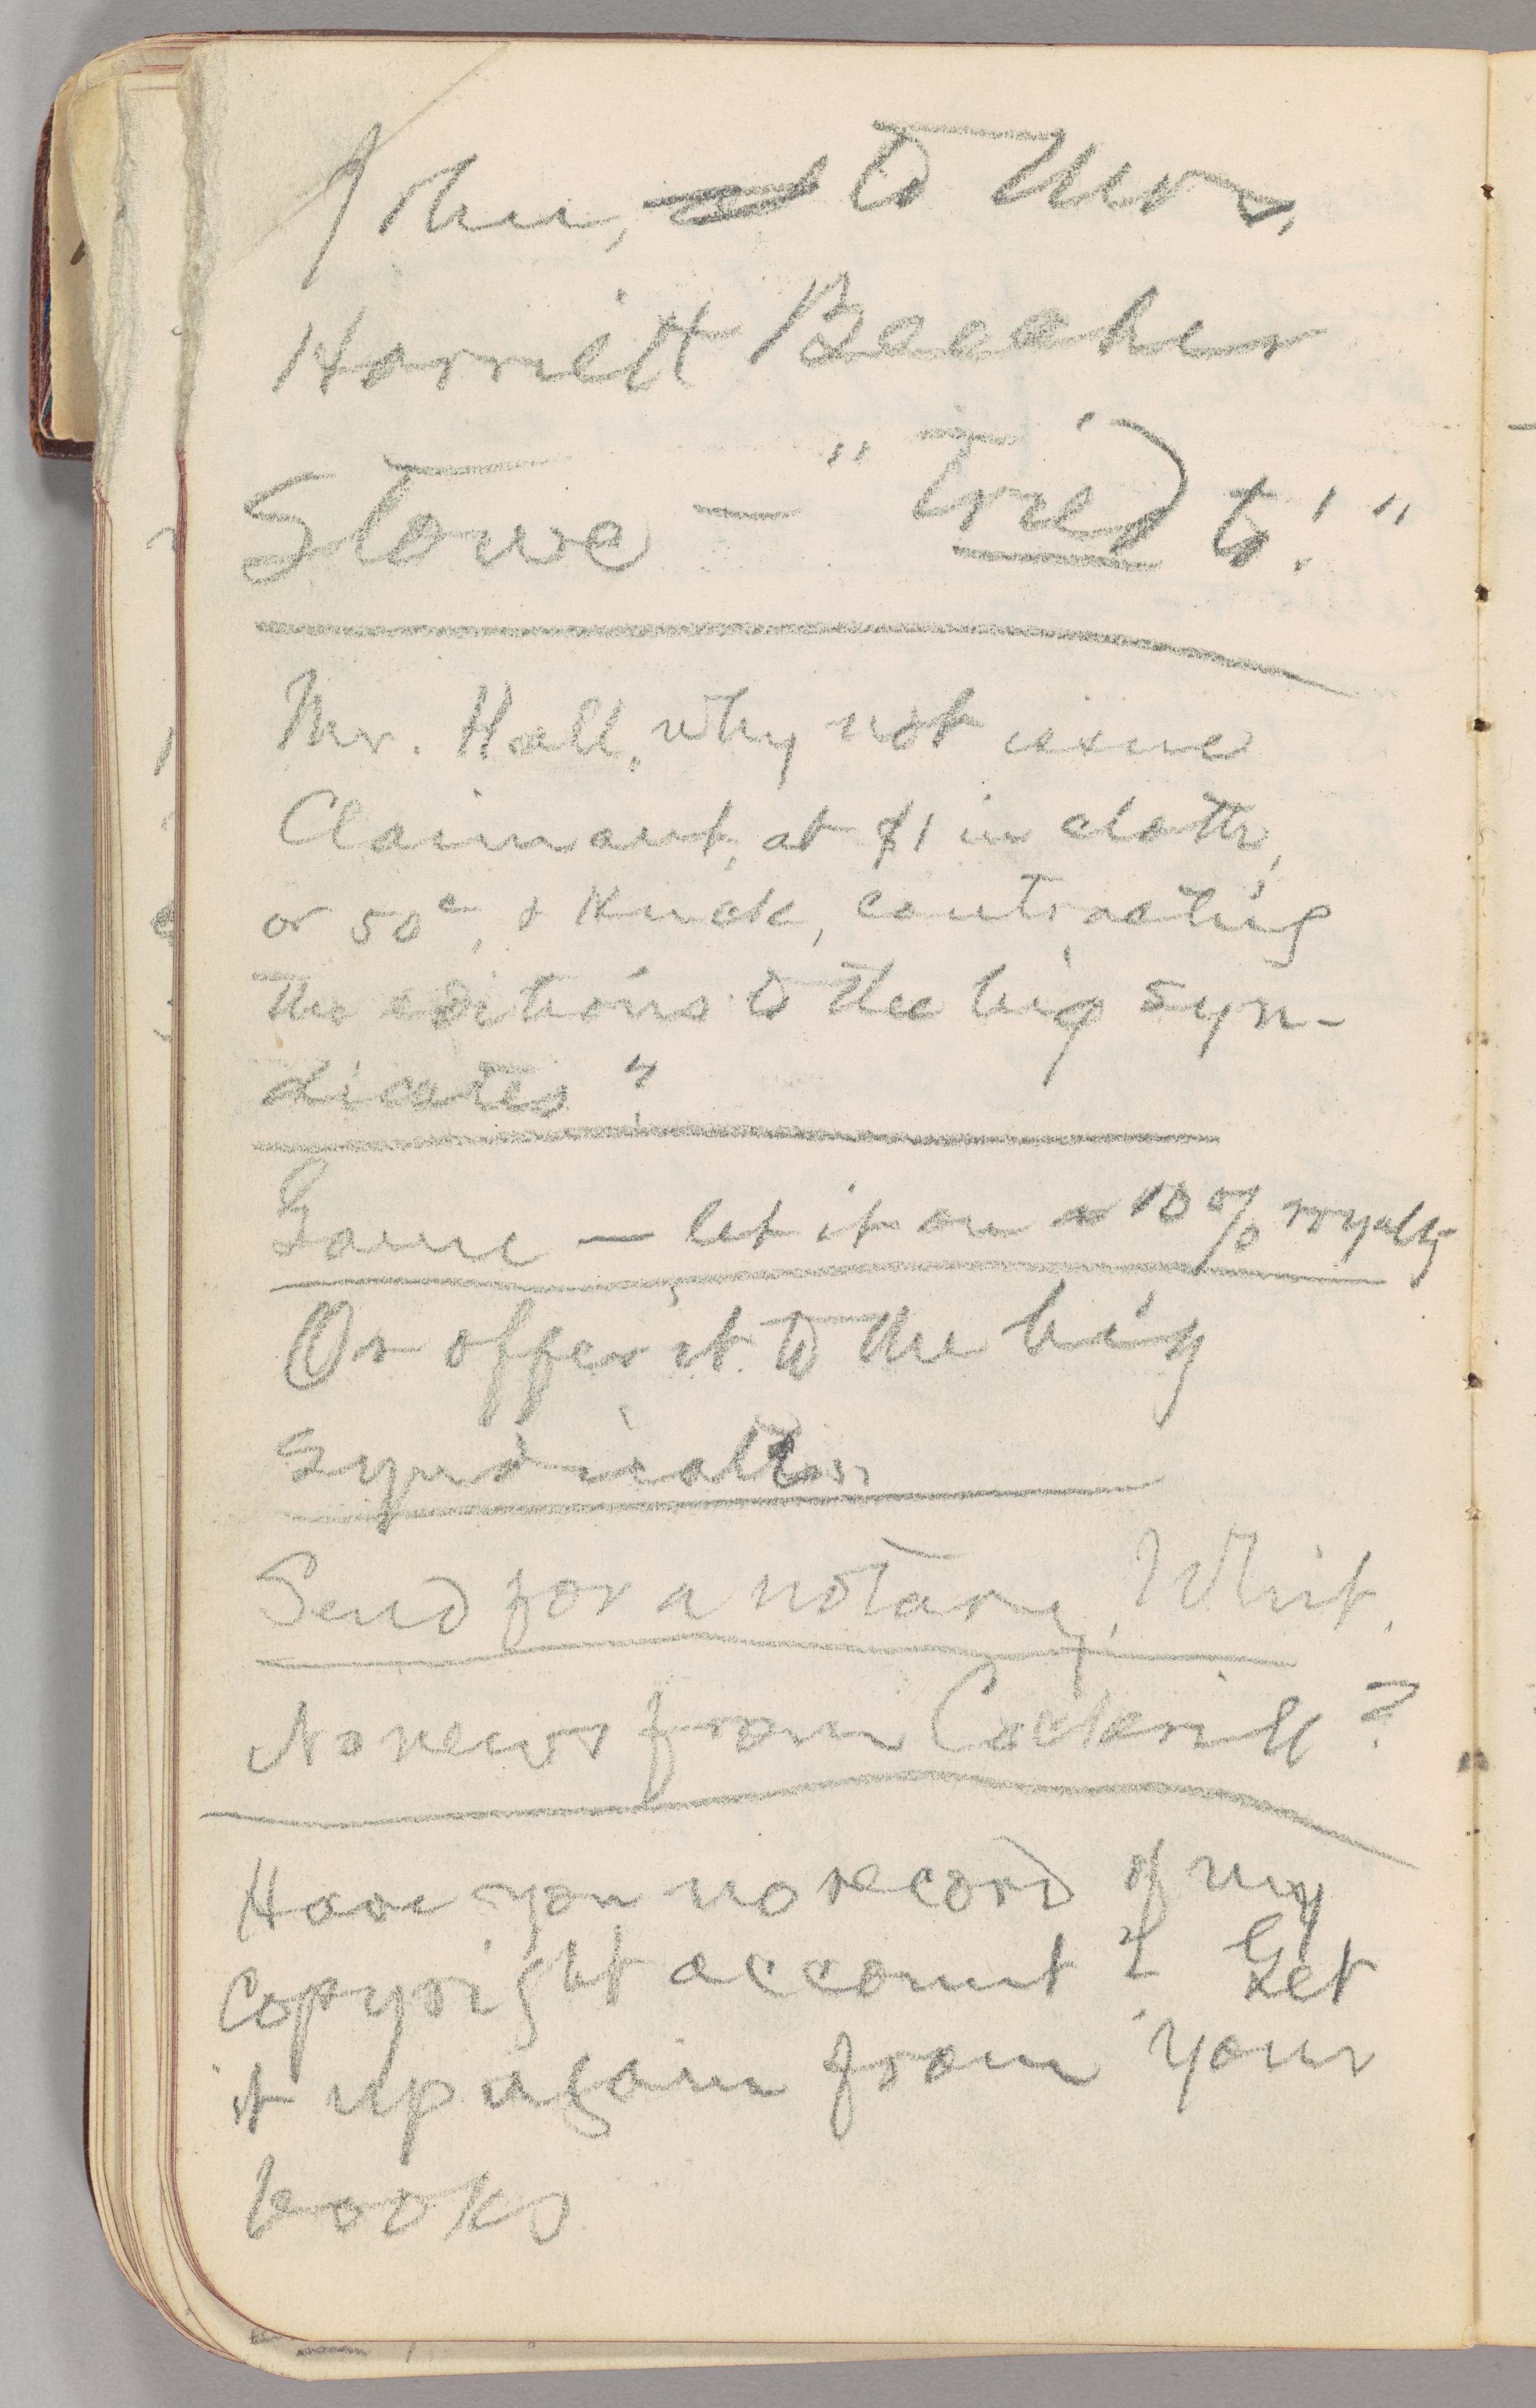 John, to Mrs.
Harriett Beecher
Stowe — "Tried to!"
Mr. Hall, why not issue
Claimant, at $1 in cloth,
or 50c, & Huck, contracting
the editions to the big syn-
dicates?
Game — let it on a 10% royalty
Or offer it to the big
syndicates.
Send for a notary, Whit.
No news from Cockerill?
Have you no record of my
copyright account? Get
it up again from your
books